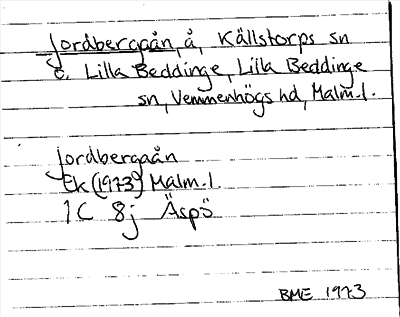 Jordbergaån, å, Källstorps sn
o. Lilla Beddinge, Lilla Beddinge
sn, Vemmenhögs hd, Malm. l.
Jordbergaån
Ek (1973) Malm. l
1C 8j Äspö
BME 1973